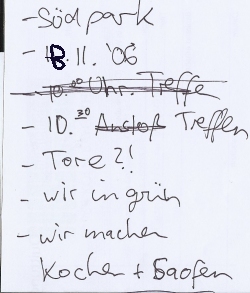 - Südpark
- 18. 11. '06
- 10.⁰⁰ Uhr. Treffe
- 10.³⁰ Anstoß Treffen
- Tore?!
- wir in grün
- wir machen
Kochen + Saofen